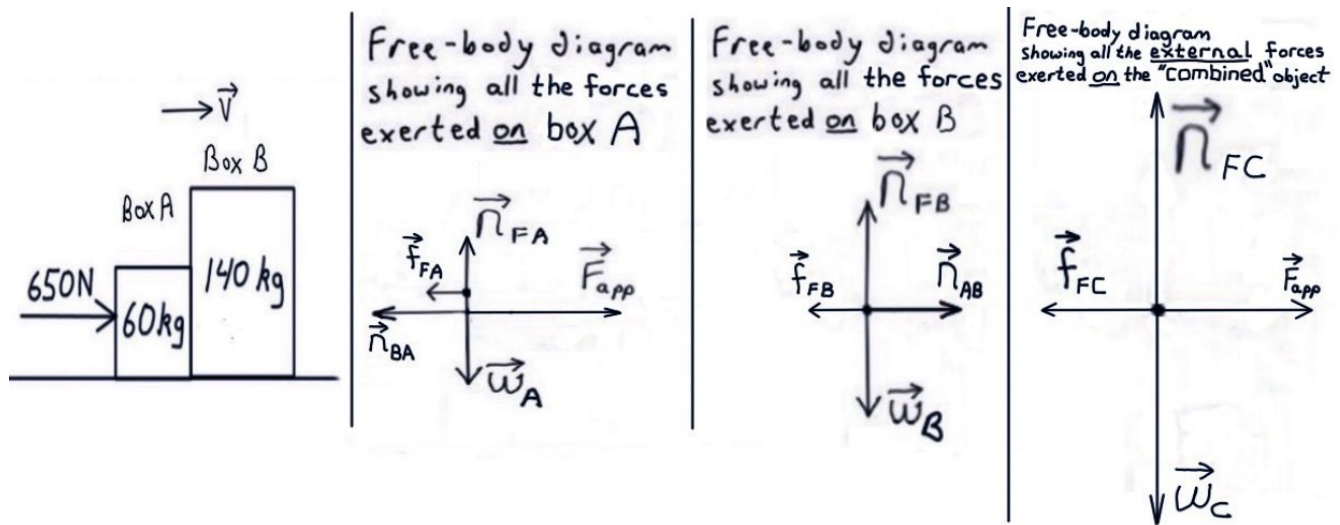 →V
Box B
Box A
650N
60kg
140 kg
Free-body diagram
showing all the forces
exerted on box A
n⃗ FA
f⃗ FA
F⃗ app
n⃗ BA
w⃗ A
Free-body diagram
showing all the forces
exerted on box B
n⃗ FB
f⃗ FB
n⃗ AB
w⃗ B
Free-body diagram
showing all the external forces
exerted on the "combined" object
n⃗ FC
f⃗ FC
F⃗ app
w⃗ C